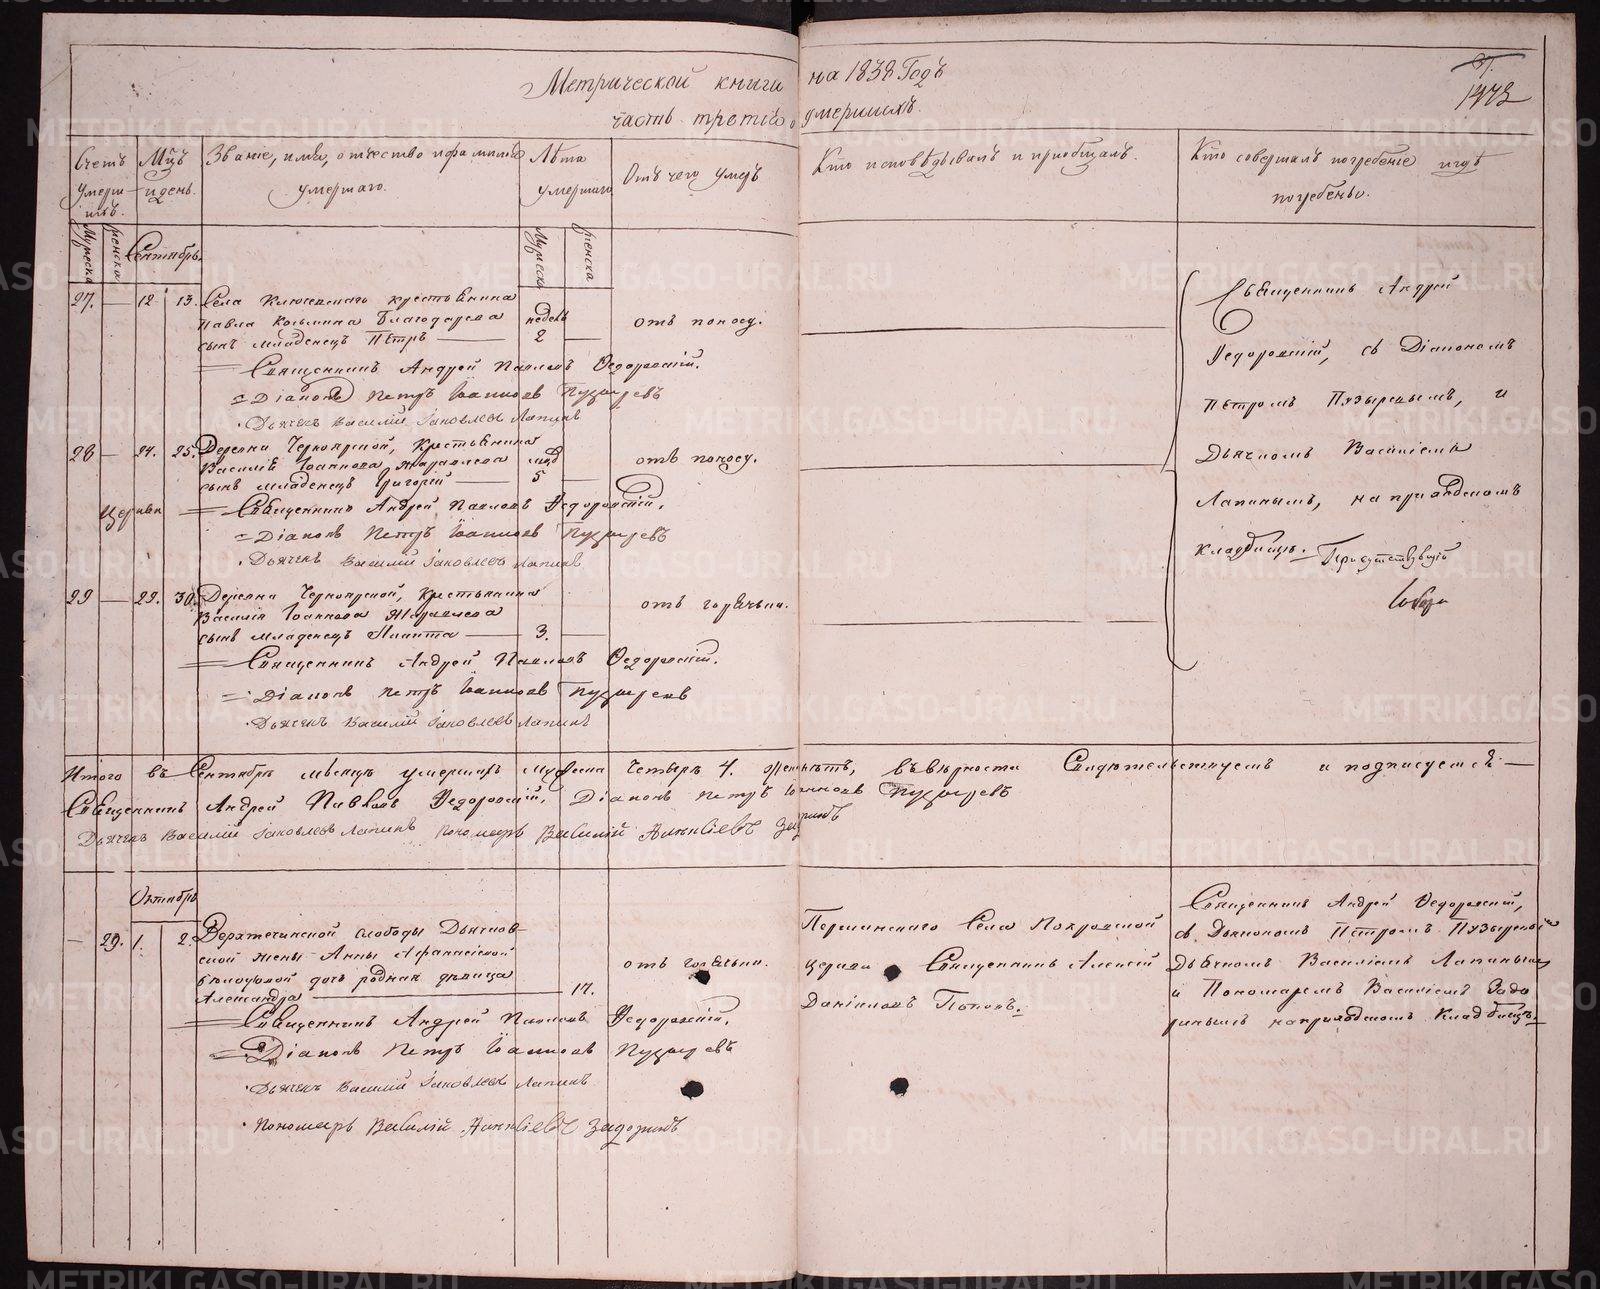 Метрической книги на 1838 Годъ
часть третiя о умершихъ.
1472
Счетъ умершихъ.
Мцъ и день.
Званiе, имя, отчество и фамилiя умершаго.
Лѣта умершаго
Отъ чего умеръ
Кто исповѣдывалъ и прiобщалъ.
Кто совершалъ погребенiе и гдѣ погребены.
Мужеска
женска
Сентябрь.
Мужеска
женска
27. — 12. 13. Села Ключевскаго крестьянина
Павла Козьмина Благодарева недѣль отъ поносу.
сынъ младенецъ Петръ — 2 —
Священникъ Андрей Павловъ Ѳедоровскiй.
Дiаконъ Петръ Iоанновъ Пузыревъ
Дьячекъ Василiй Iаковлевъ Лапинъ
28 — 24. 25. Деревни Черноярской, крестьянина
Василiя Iоаннова Журавлева мцъ отъ поносу.
сынъ младенецъ Григорiй — 5 —
Церкви Священникъ Андрей Павловъ Ѳедоровскiй.
Дiаконъ Петръ Iоанновъ Пузыревъ
Дьячекъ Василiй Iаковлевъ Лапинъ
29 — 29. 30. Деревни Черноярской, крестьянина
Василiя Iоаннова Журавлева отъ горячки.
сынъ младенецъ — 3. —
Священникъ Андрей Павловъ Ѳедоровскiй.
Дiаконъ Петръ Iоанновъ Пузыревъ
Дьячекъ Василiй Iаковлевъ Лапинъ
Священникъ Андрей
Ѳедоровскiй, съ Дiакономъ
Петромъ Пузыревымъ, и
Дьячкомъ Василiемъ
Лапинымъ, на приходскомъ
кладбищѣ.
Итого въ Сентябрѣ мѣсяцѣ умершихъ мужеска четыре 4. женска нѣтъ, въ вѣрности Свидѣтельствуемъ и подписуемся —
Священникъ Андрей Павловъ Ѳедоровскiй. Дiаконъ Петръ Iоанновъ Пузыревъ
Дьячекъ Василiй Iаковлевъ Лапинъ Пономарь Василiй Задоринъ
Октябрь
— 29. 1. 2. Верхтечинской слободы Дьячков-
ской жены Анны Афанасiевой
дочь родная дѣвица отъ горячки.
Александра — 17.
Священникъ Андрей Павловъ Ѳедоровскiй.
Дiаконъ Петръ Iоанновъ Пузыревъ
Дьячекъ Василiй Iаковлевъ Лапинъ
Пономарь Василiй Задоринъ
Першинскаго Села Покровской
церкви Священникъ Алексiй
Данiиловъ Поповъ.
Священникъ Андрей Ѳедоровскiй,
съ Дьякономъ Петромъ Пузыревымъ
Дьячкомъ Василiемъ Лапинымъ
и Пономаремъ Василiемъ Задо
ринымъ на приходскомъ Кладбищѣ.
METRIKI.GASO-URAL.RU